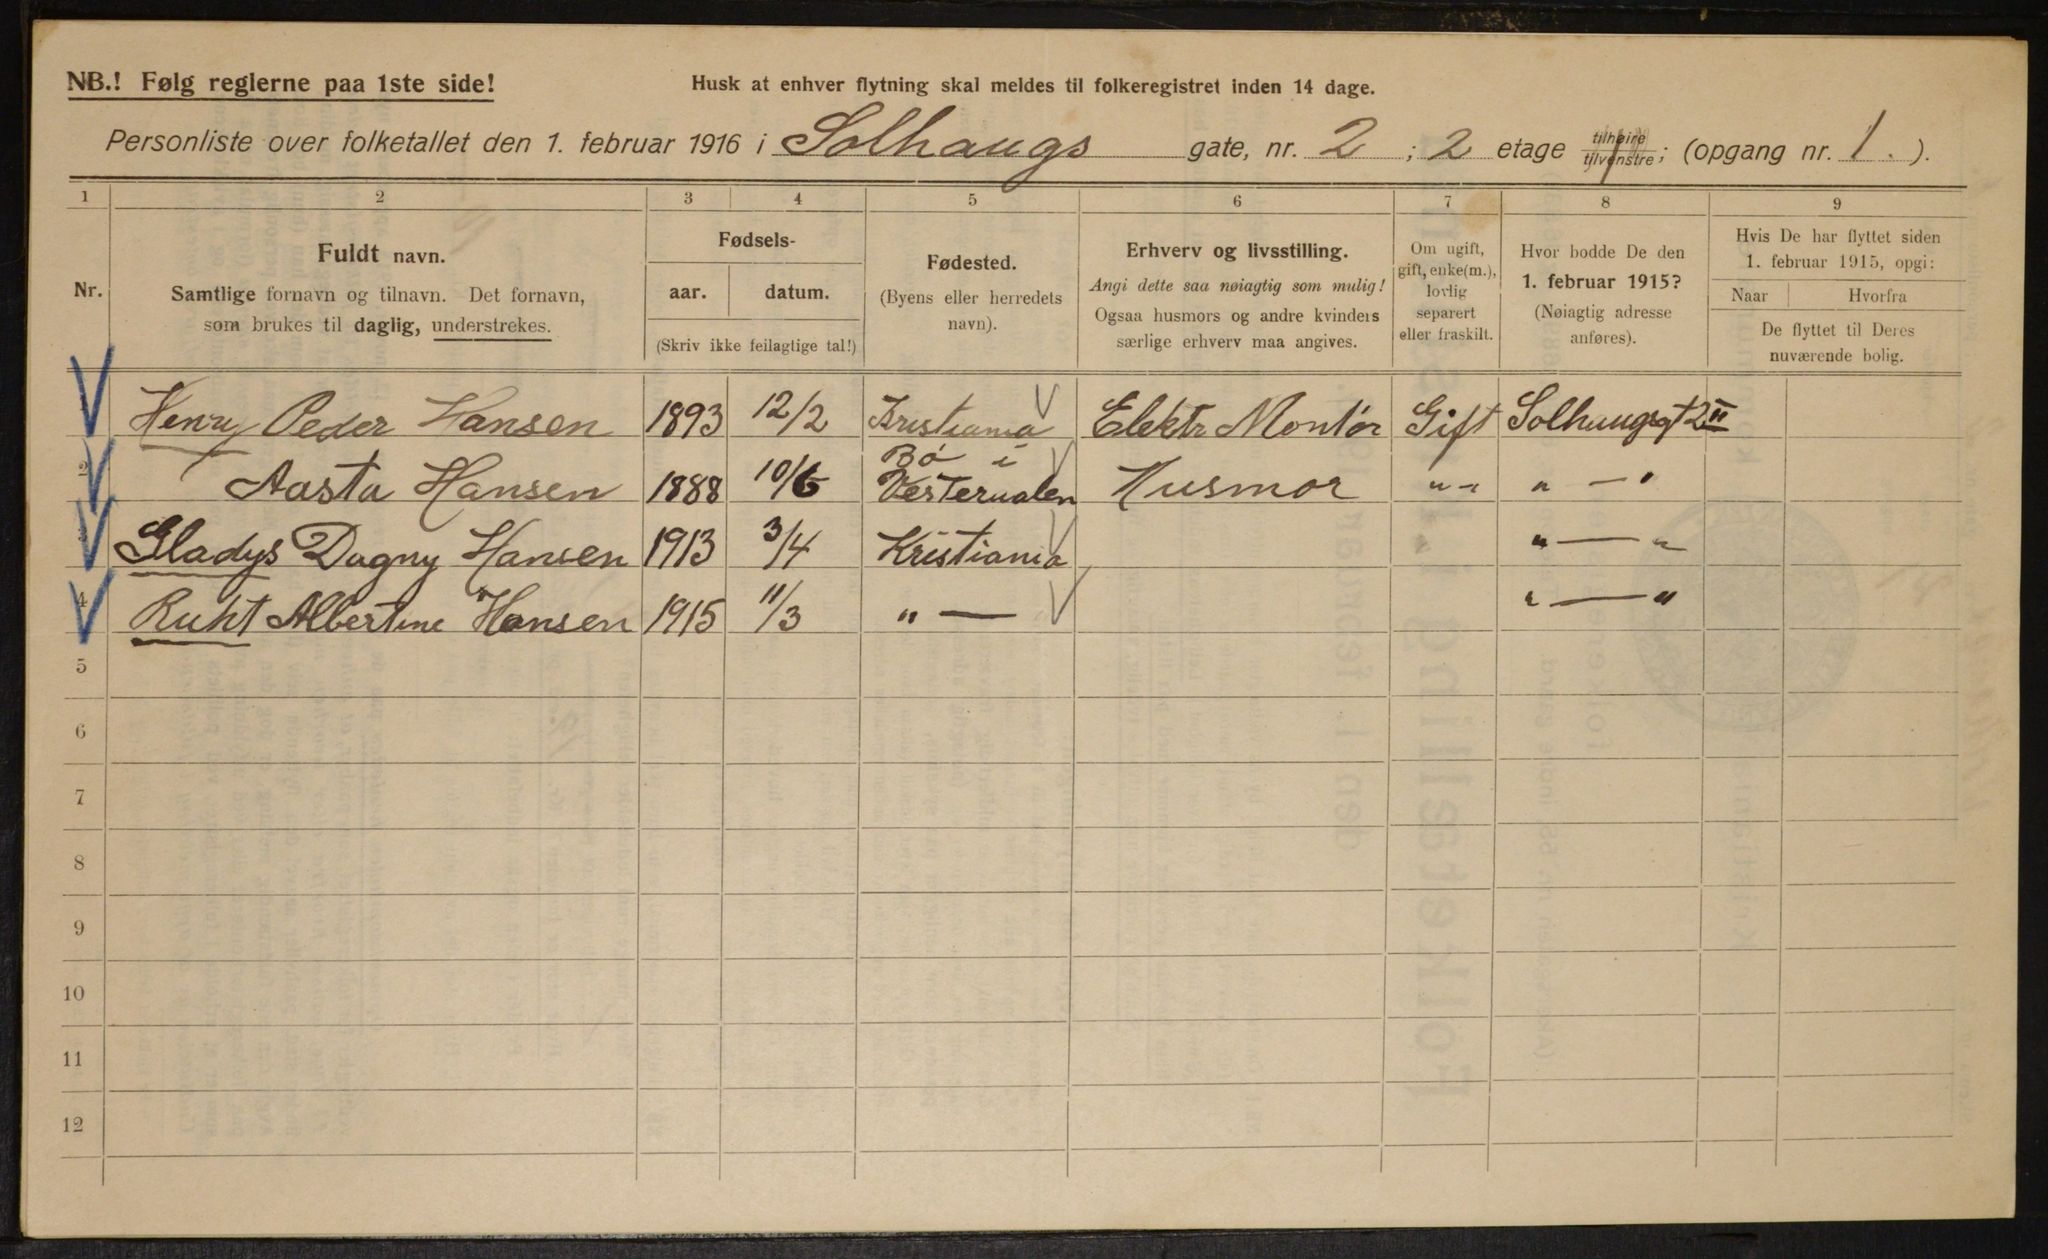 NB.! Følg reglerne paa 1ste side!
Husk at enhver flytning skal meldes til folkeregistret inden 14 dage.
Personliste over folketallet den 1. februar 1916 i Solhaugs gate, nr. 2 ; 2 etage tilhøire tilvenstre; (opgang nr. 1. ).
1 2 3 4 5 6 7 8 9
Nr.
Fuldt navn.
Samtlige fornavn og tilnavn. Det fornavn,
som brukes til daglig, understrekes.
Fødsels-
aar. datum.
(Skriv ikke feilagtige tal!)
Fødested.
(Byens eller herredets
navn).
Erhverv og livsstilling.
Angi dette saa nøiagtig som mulig!
Ogsaa husmors og andre kvinders
særlige erhverv maa angives.
Om ugift,
gift, enke(m.),
lovlig
separert
eller fraskilt.
Hvor bodde De den
1. februar 1915?
(Nøiagtig adresse
anføres).
Hvis De har flyttet siden
1. februar 1915, opgi:
Naar Hvorfra
De flyttet til Deres
nuværende bolig.
Henry Peder Hansen 1893 12/2 Kristiania Elektr Montør Gift Solhaugsgt 2 II
2 Aasta Hansen 1888 10/6 Bø i Vesteraalen Husmor " " " — "
3 Gladys Dagny Hansen 1913 3/4 Kristiania " — "
4 Ruht Albertine Hansen 1915 11/3 " — " — "
5
6
7
8
9
10
11
12